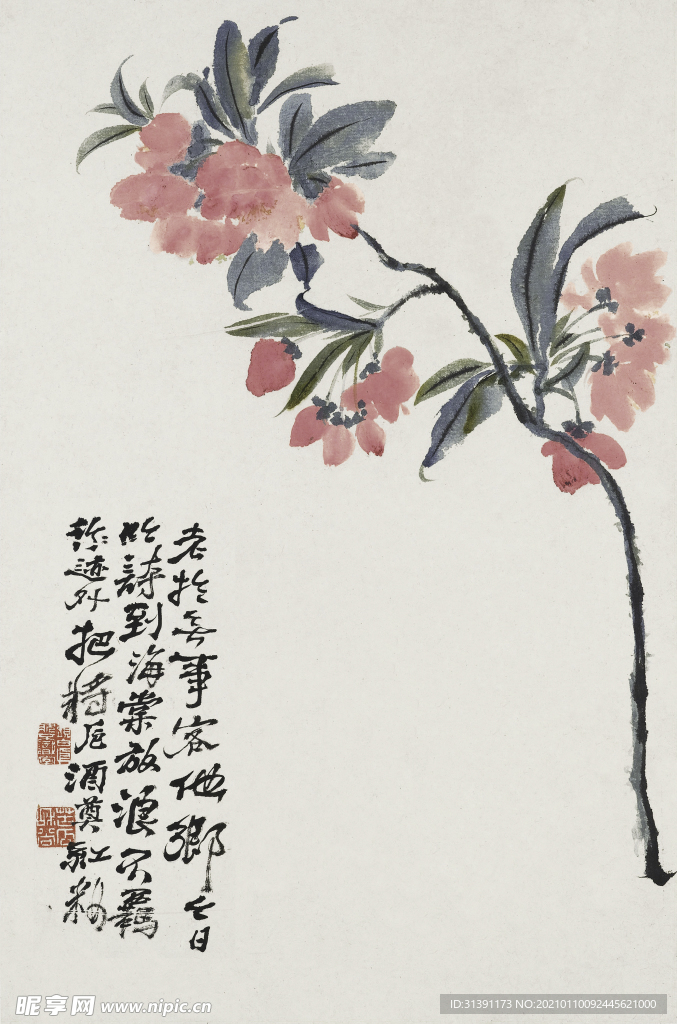 老於無事客他鄉今日
吟詩到海棠放浪不羈
形迹外把將卮酒奠紅粧
昵享网 www.nipic.cn
ID:31391173 NO:20210110092445621000